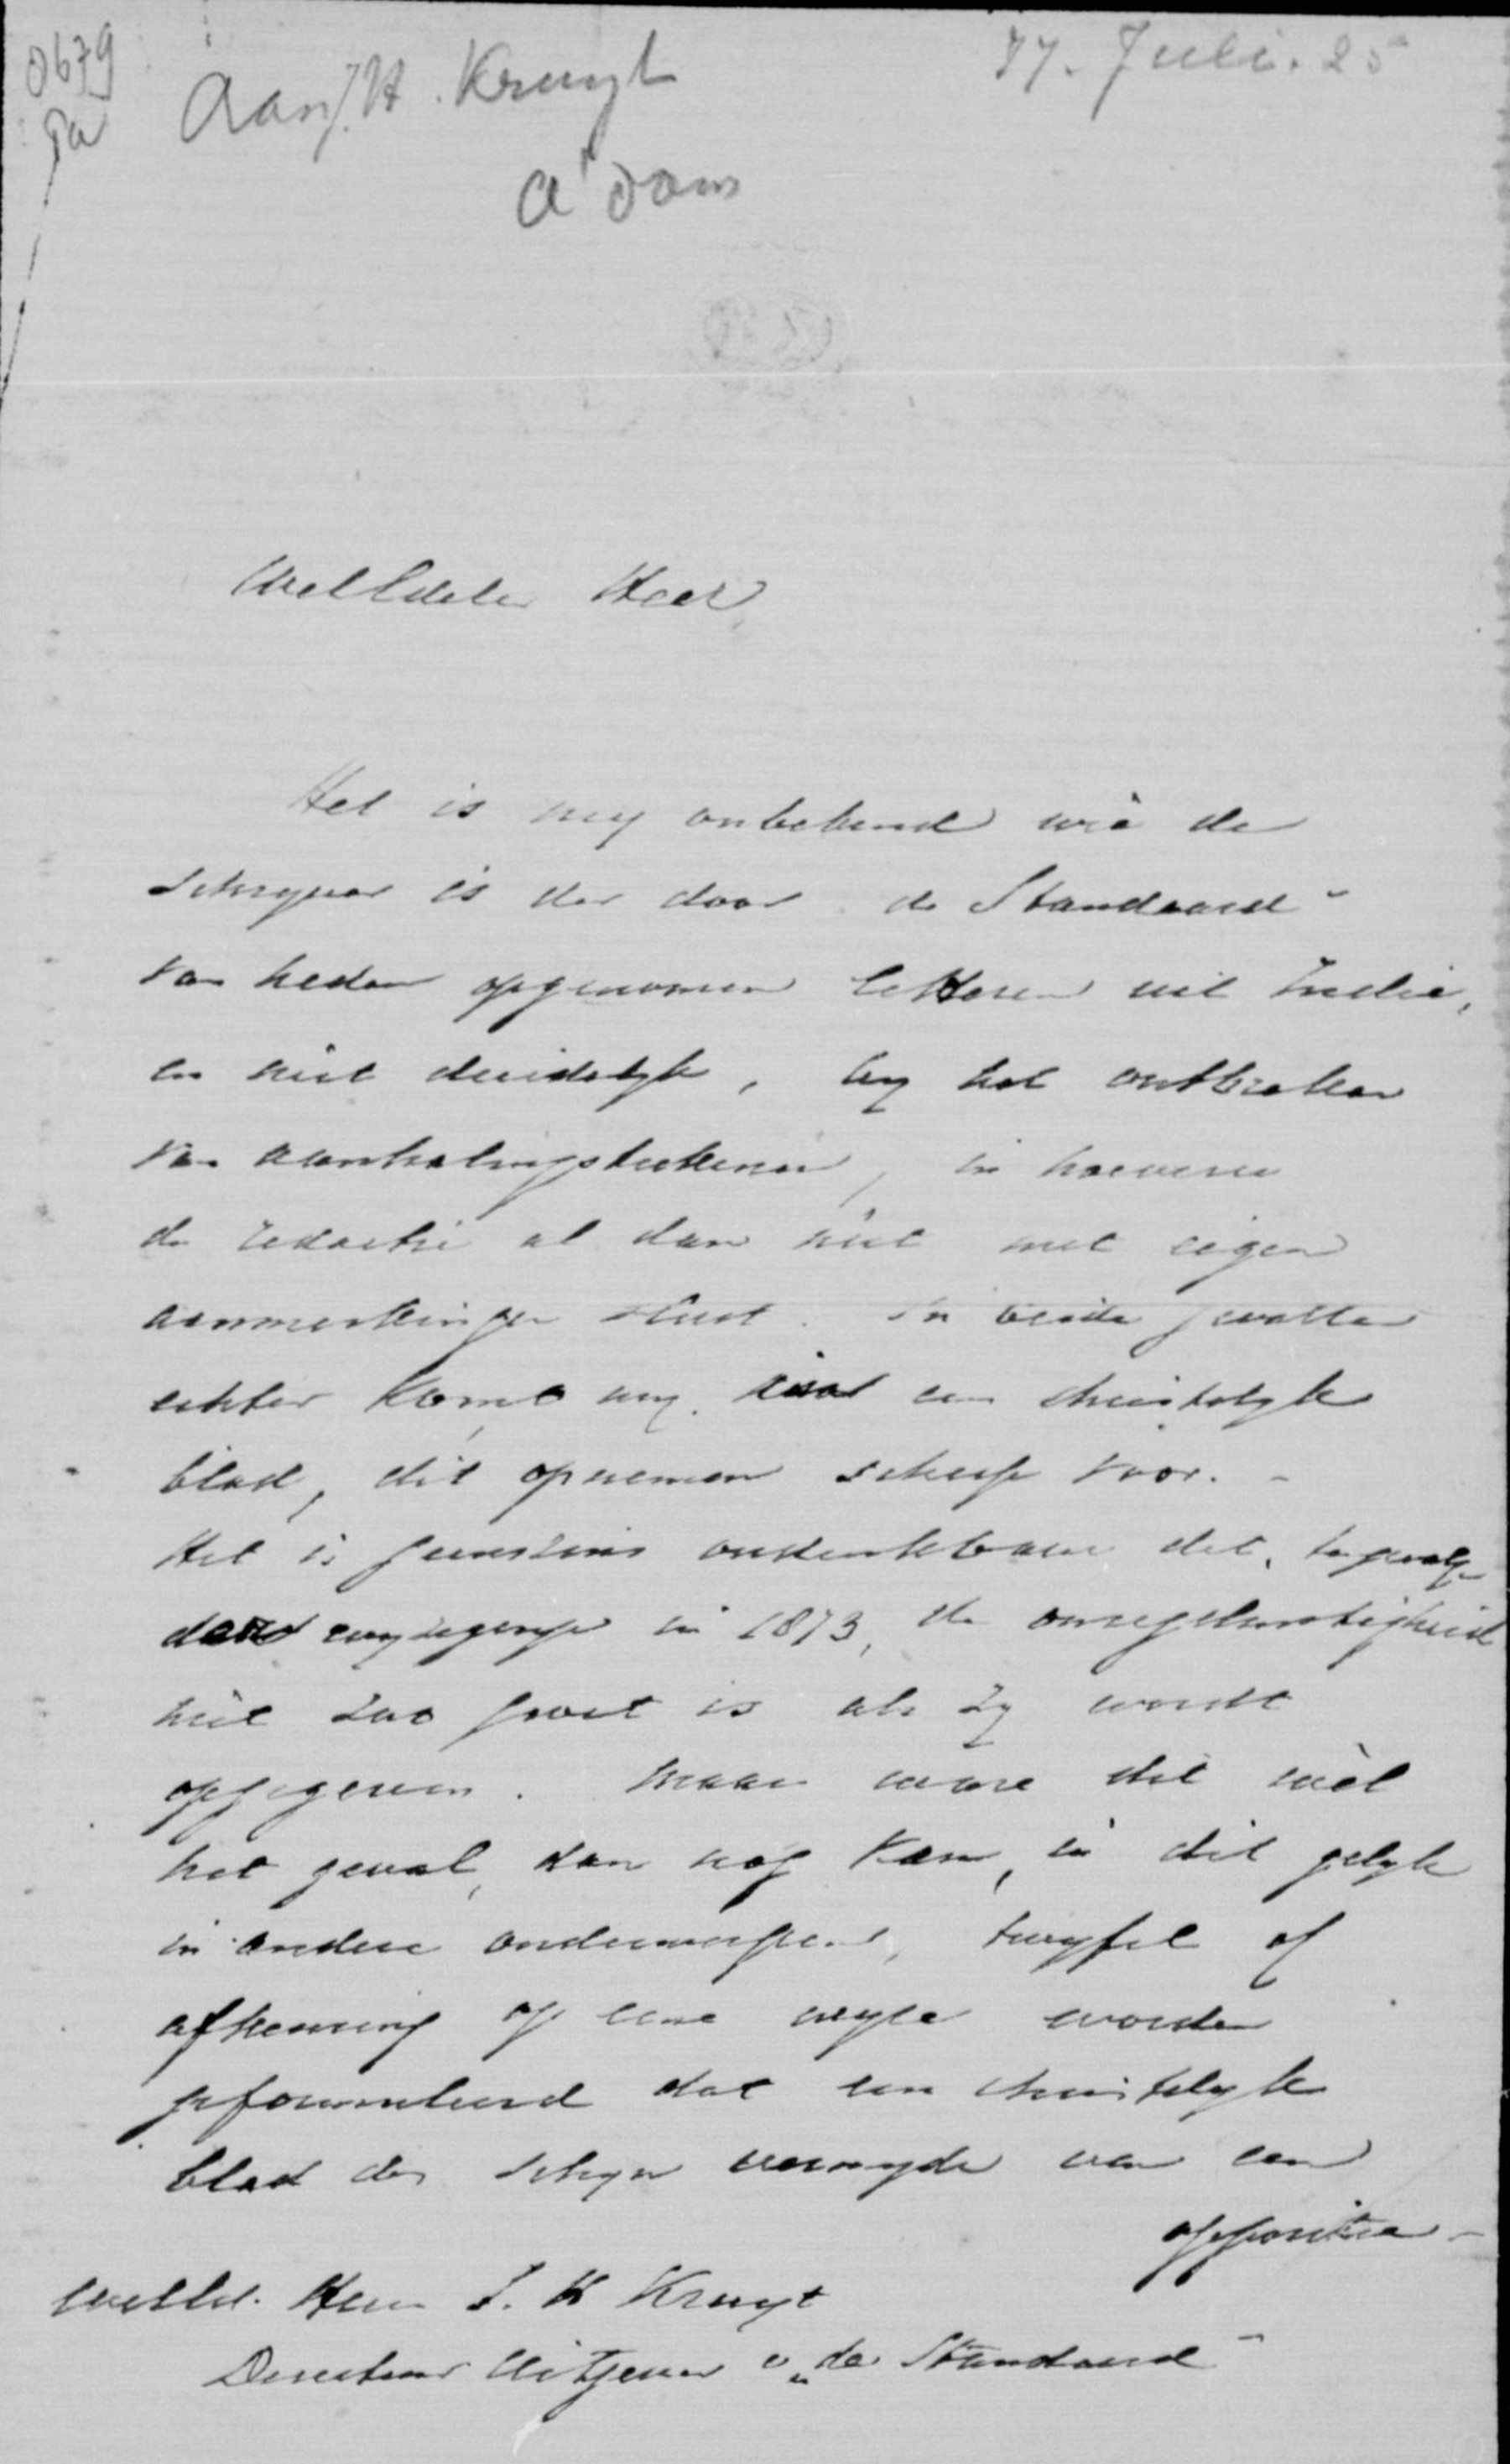 0679
Pa
Aan J. H. Kruyt
A'dam
77. Juli. 25
WelEdele Heer,
Het is my onbekend wie de
schryver is der door de Standaard"
van heden opgenomen letteren uit Indië,
en niet duidelyk, by het ontbreken
van aanhalingsteekenen, in hoeverre
de redactie al dan niet met eigen
aanmerkingen sluit. In beide gevallen
echter komt my, voor een christelyk
blad, dit opnemen scheef voor. -
Het is geenszins ondenkbaar dat,
in 1873, de onregelmatigheid
niet zoo groot is als zy wordt
opgegeven. Maar ware dit wèl
het geval, dan nog kan, in dit gelyk
in andere onderwerpen, twyfel of
afkeuring op eene wyze worden
geformuleerd dat een christelyk
blad den schyn vermyde van een
oppositie-
WelEd. Heer J. H Kruyt
Directeur Uitgever v „de Standaard"